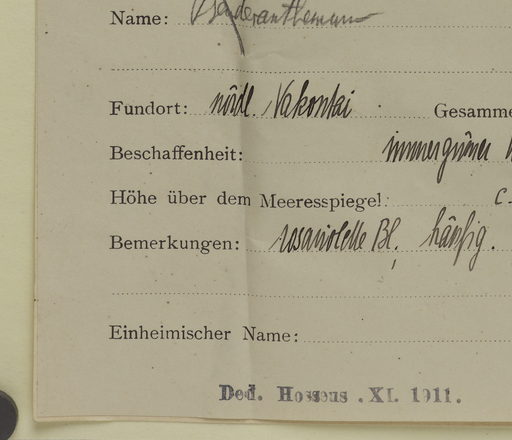 Name: Pseuderanthemum
Fundort: nördl. Nakontai Gesamme
Beschaffenheit: immergrüner
Höhe über dem Meeresspiegel: c.
Bemerkungen: rosaviolette Bl., häufig.
Einheimischer Name:
Ded. Hosseus . XI. 1911.